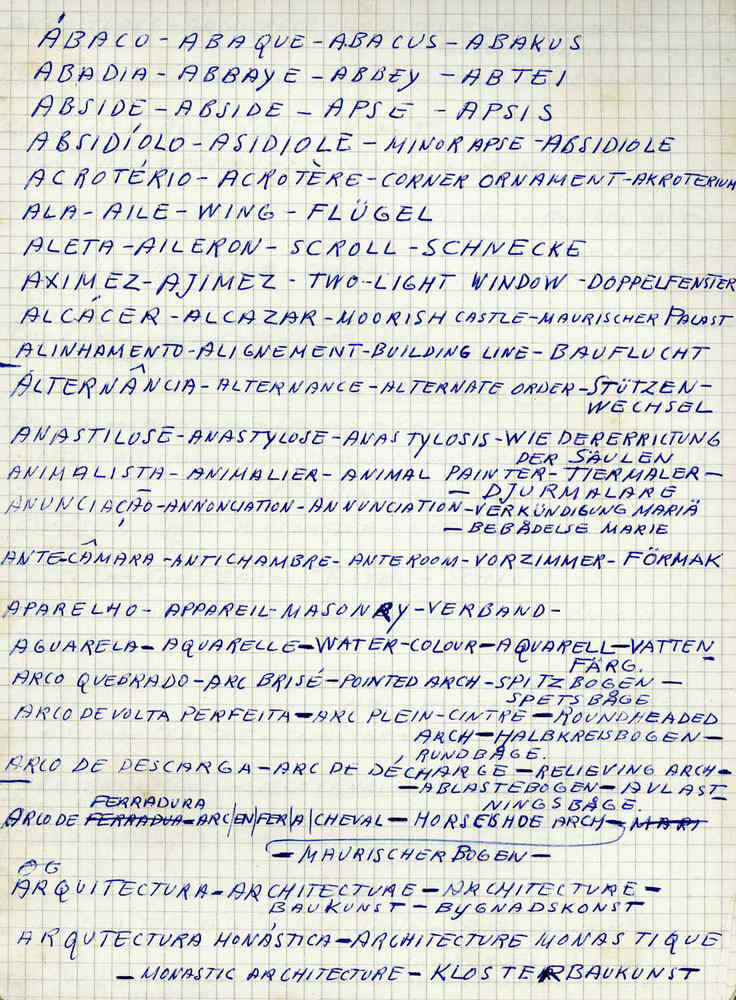 ÁBACO - ABAQUE - ABACUS - ABAKUS
ABADIA - ABBAYE - ABBEY - ABTEI
ABSIDE - ABSIDE - APSE - APSIS
ABSIDÍOLO - ASIDIOLE - MINOR APSE - ABSIDIOLE
ACROTÉRIO - ACROTÈRE - CORNER ORNAMENT - AKROTERIUM
ALA - AILE - WING - FLÜGEL
ALETA - AILERON - SCROLL - SCHNECKE
AXIMEZ - AJIMEZ - TWO-LIGHT WINDOW - DOPPELFENSTER
ALCÁCER - ALCAZAR - MOORISH CASTLE - MAURISCHER PALAST
ALINHAMENTO - ALIGNEMENT - BUILDING LINE - BAUFLUCHT
ALTERNÂNCIA - ALTERNANCE - ALTERNATE ORDER - STÜTZEN-
WECHSEL
ANASTILOSE - ANASTYLOSE - ANASTYLOSIS - WIEDERERRICTUNG
DER SÄULEN
ANIMALISTA - ANIMALIER - ANIMAL PAINTER - TIERMALER -
- DJURMALARE
ANUNCIAÇÃO - ANNONCIATION - ANNUNCIATION - VERKÜNDIGUNG MARIÄ
- BEBÅDELSE MARIE
ANTE-CÂMARA - ANTICHAMBRE - ANTEROOM - VORZIMMER - FÖRMAK
APARELHO - APPAREIL - MASONRY - VERBAND -
AGUARELA - AQUARELLE - WATER-COLOUR - AQUARELL - VATTEN
FÄRG.
ARCO QUEBRADO - ARC BRISÉ - POINTED ARCH - SPITZBOGEN -
SPETSBÅGE
ARCO DE VOLTA PERFEITA - ARC PLEIN-CINTRE - ROUNDHEADED
ARCH - HALBKREISBOGEN -
RUNDBÅGE.
ARCO DE DESCARGA - ARC DE DÉCHARGE - RELIEVING ARCH -
- ABLASTEBOGEN - AVLAST
NINGSBÅGE.
FERRADURA
ARCO DE FERRADUA - ARC|EN|FER|A|CHEVAL - HORSESHOE ARCH - MARI
- MAURISCHER BOGEN -
AG
ARQUITECTURA - ARCHITECTURE - ARCHITECTURE -
BAUKUNST - BYGNADSKONST
ARQUTECTURA MONÁSTICA - ARCHITECTURE MONASTIQUE
- MONASTIC ARCHITECTURE - KLOSTERBAUKUNST